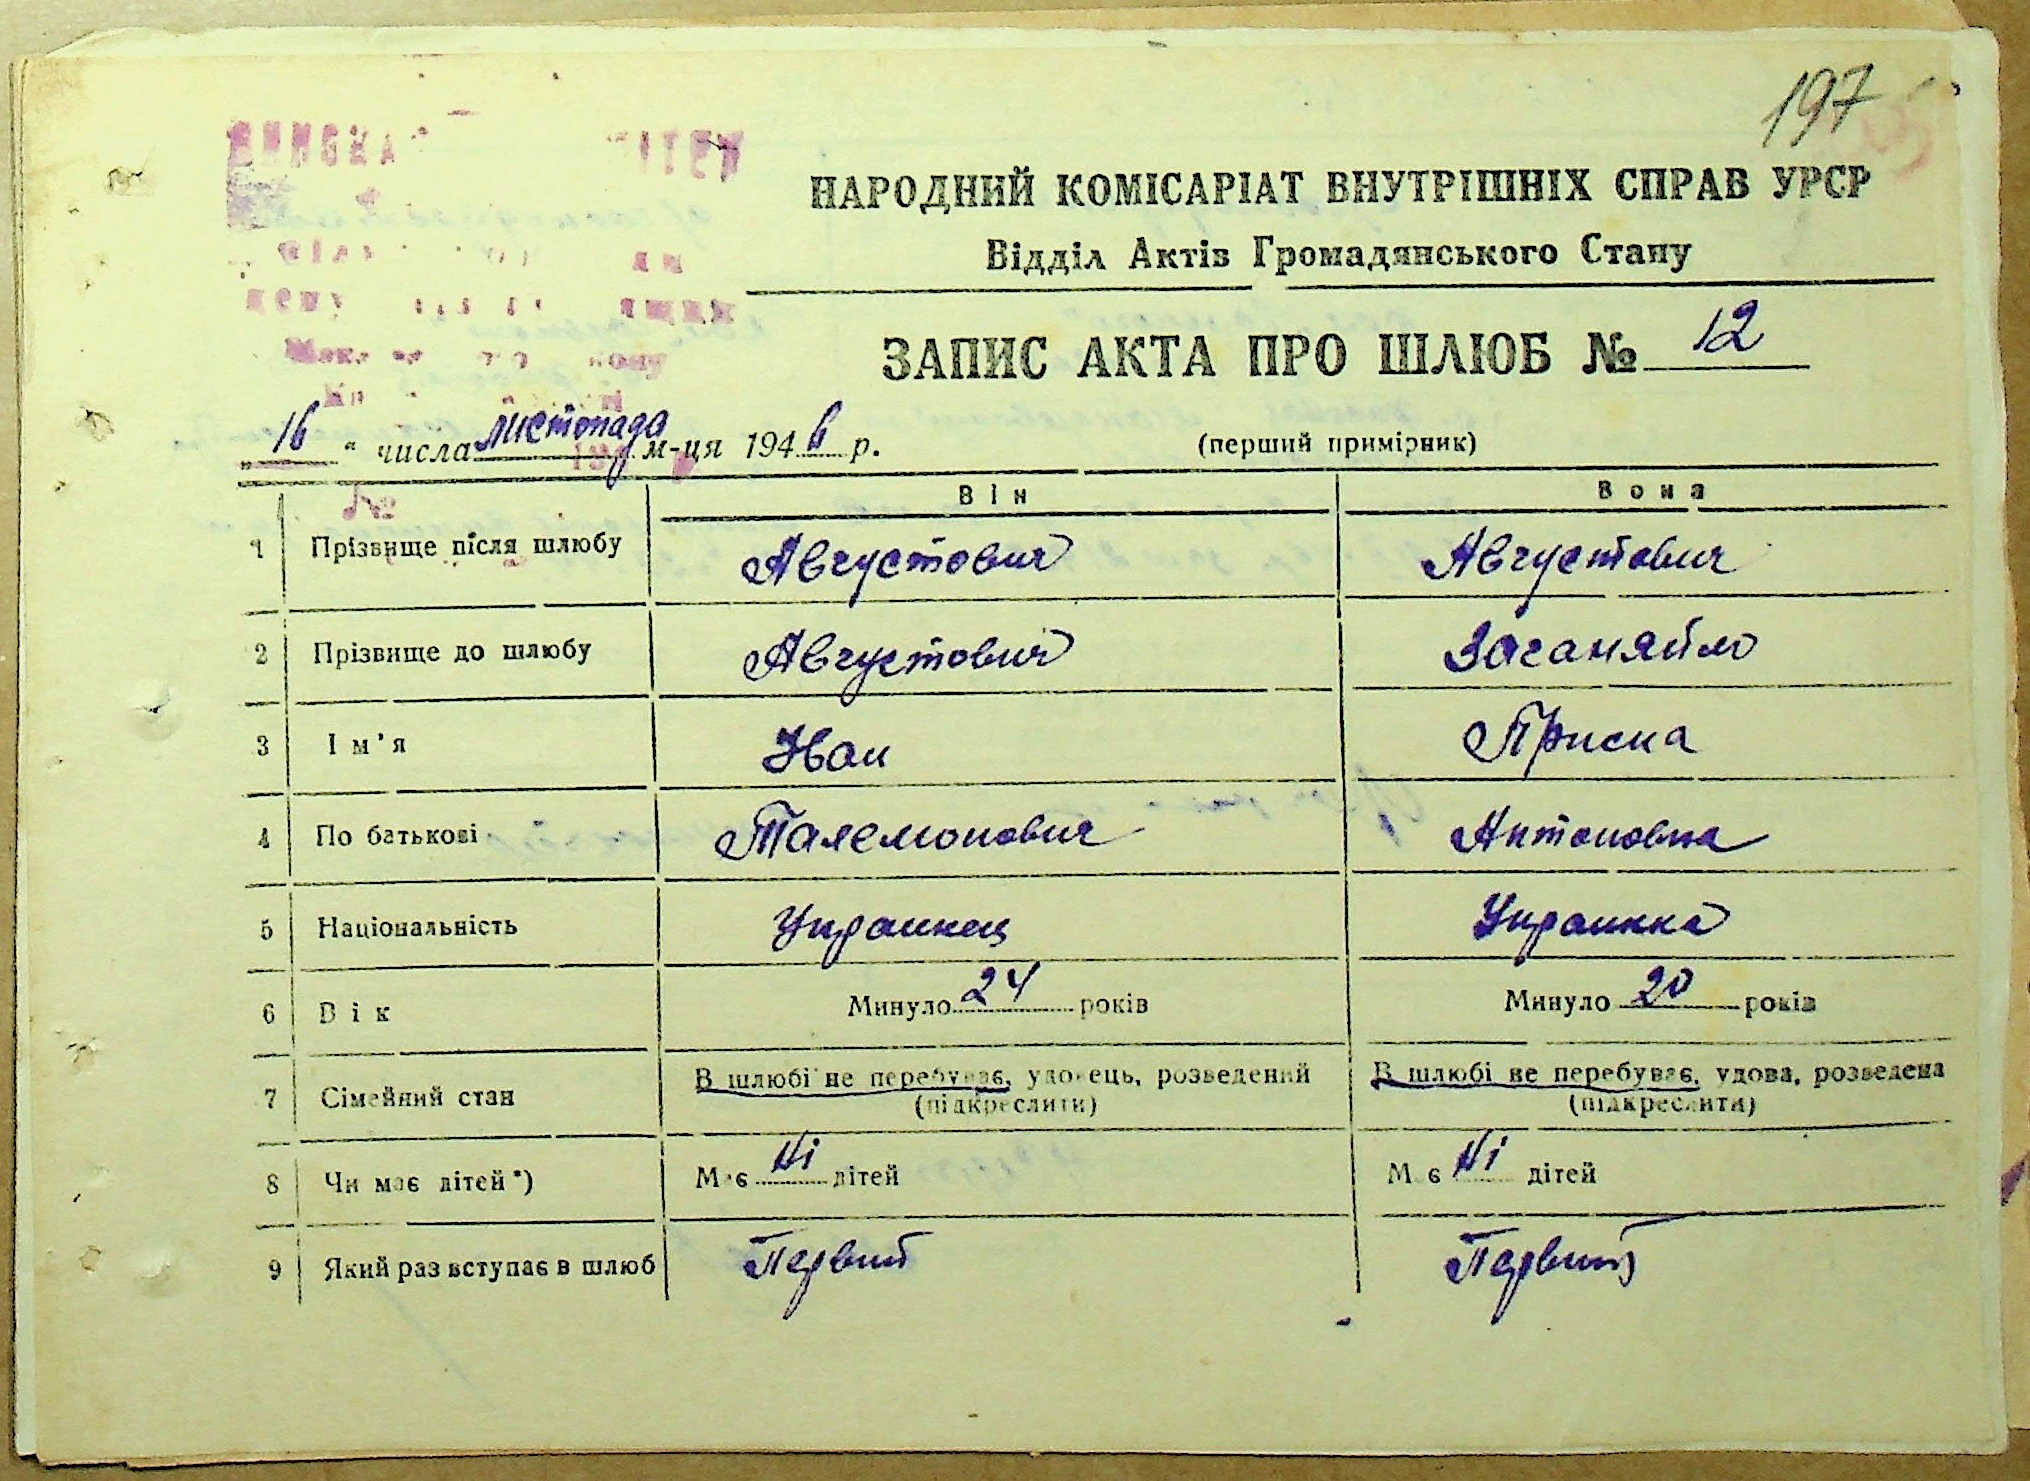 197
НАРОДНИЙ КОМІСАРІАТ ВНУТРІШНІХ СПРАВ УРСР
Відділ Актів Громадянського Стану
ЗАПИС АКТА ПРО ШЛЮБ № 12
„ 16 “ числа листопада м-ця 1946 р. (перший примірник)
№
Він Вона
1 Прізвище після шлюбу Августович Августович
2 Прізвище до шлюбу Августович Заганяйло
3 Ім'я Иван Приска
4 По батькові Палемонович Антоновна
5 Національність Украинец Украинка
6 Вік Минуло 24 років Минуло 20 років
7 Сімейний стан В шлюбі не перебуває, удовець, розведений В шлюбі не перебуває, удова, розведена
(підкреслити) (підкреслити)
8 Чи має дітей *) Має Ні дітей Має Ні дітей
9 Який раз вступає в шлюб Первий Первий